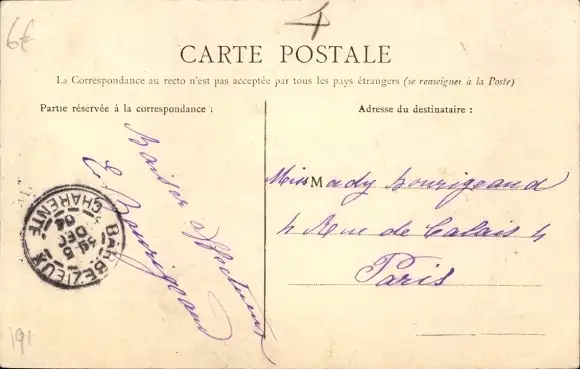 6€
4
CARTE POSTALE
La Correspondance au recto n'est pas acceptée par tous les pays étrangers (se renseigner à la Poste)
Partie réservée à la correspondance :
Adresse du destinataire :
Baiser affectueux
E Bourigeaud
Miss Mady Bourigeaud
4 Rue de Calais 4
Paris
BARBEZIEUX
CHARENTE
5
DEC
04
191